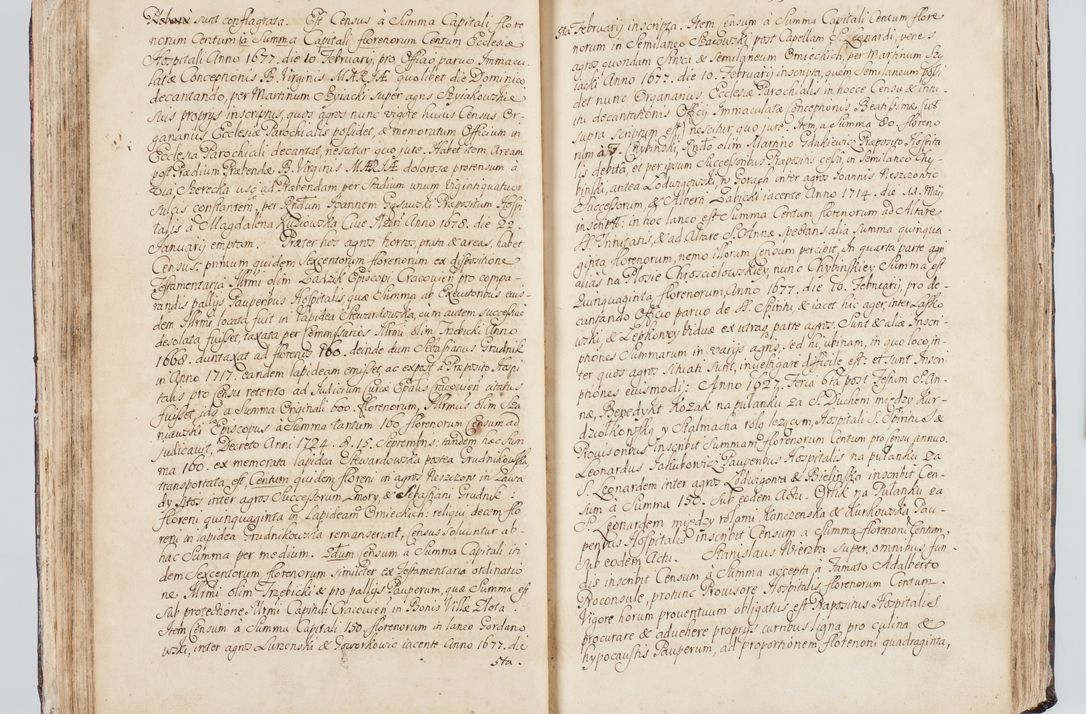 sunt conflagrata. Est Census à Summa Capitali flore
norum Centum à Summa Capitali florenorum Centum Ecclesiæ
Hospitali Anno 1677. die 10. February, pro Officio parvo Immacu
latæ Conceptionis B. Virginis MARIÆ quolibet die Dominico
decantando, per Martinum Szyiacki super agris Szyiakowskie
suis proprys inscriptus, quos agros nunc vigore huius Census Or-
ganarius Ecclesiæ Parochialis possidet, & memoratum Officium in
Ecclesia Parochiali decantat, nescitur quo jure. Habet item Aream
post Prædium Præbendæ B. Virginis MARIÆ dolorosæ protensum à
via Szerecka usq; ad Præbendam per Stadium unum viginti quatuor
sulcis constantem, per Rndum Ioannem Gąsawski Præpositum Hospi
talis à Magdalena Kusiowska Cive Anno 1678. die 22.
January emptam. Præter hos agros hortos, prata & areas, habet
Census: primum quidem sexcentorum florenorum ex dispositione
Testamentaria Illrmi olim Zadzik Episcopi Cracovien pro compa-
randis pallys Pauperibus Hospitalis, quæ Summa ab Executoribus eius-
dem Illrmi locata fuit in lapidea Stewardowska, cum autem successive
desolata fuisset, taxata per Commissarios Illrmi olim Trzebicki Anno
1668. duntaxat ad florenos 160. deinde dum Sebastianus Grudnik
in Anno 1717. eandem lapideam emisset, ac expost à Præposito Hospi
talis pro censu retento ad Iudicium Curiæ Epalis Cracovien citatus
fuisset, ide a Summa Originali 600. florenorum, Illrmus olim Sza
niawski Episcopus à Summa tantum 160. florenorum Censum ad
judicavit, Decreto Anni 1724. d. 15. Septembris: tandem hæc Sum
ma 160. ex memorata lapidea Stewardowska postea Grudnikowska,
transportata est, Centum quidem floreni in agros Reszczony in Zawa
dy sitos inter agros Successorum Emory, & Sebastiani Grudnik:
floreni quinquaginta in Lapideam Omieckich: reliqui decem flo
reni in lapidea Grudnikowska remanserunt, Census solvuntur ab
hac Summa per medium. 2dum Censum a Summa Capitali iti
dem Sexcentorum florenorum similiter ex Testamentaria ordinatio
ne Illrmi olim Trzebicki & pro pallys Pauperum, quæ Summa est
sub protectione Illrmi Capituli Cracovien in Bonis Villæ Złota.
Item Censum à Summa Capitali 150. florenorum in laneo Gordano
wski, inter agros Lurzenski & Howorkowic iacente Anno 1677. die
5ta.
5ta February inscripta. Item Censum à Summa Capitali Centum flore
norum in Semilaneo Szarowski, post Capellam S. Leonardi, penes
agros quondam Anca & Semilaneum Omieckich, per Martinum Szy
iacki Anno 1677. die 10. February inscripta, quem Semilaneum possi
det nunc Organarius Ecclesiæ Parochialis in hocce Censu & intu
itu decantationis Officy Immaculatæ Conceptionis Beatissimæ, (ut
supra scriptum est) nescitur quo jure. Item, a Summa 80. floreno
rum à Chybinski, Rndo olim Martino Gdukiewicz Præposito Hospita
lis debita, et per ipsum Successoribus Præpositis cessa, in Semilaneo Chy-
binski, antea Lodwigowski, in Gorach inter agros Ioannis Reszczonic
Successorum, & Alberti Zabicki iacente Anno 1714. die 11. May
inscripta: in hoc laneo est Summa Centum florenorum ad Altare
SS. Trinitatis, & ad Altare S. Annæ Spectans alia summa quinqua-
ginta florenorum, nemo illorum Censum percipit. In quarta parte agri
alias na Płosie Chroscielowskiey, nunc Chybinskiey Summa est
Quinquaginta florenorum, Anno 1677. die 10. February, pro de-
cantando Officio parvo de S. Spiritu, & iacet hic ager, inter Lasko
wski, & Lepkowey viduæ ex utraq; parte agros. Sunt & aliæ Inscri-
ptiones Summarum in varijs agris, sed hi, ubinam, in quo loco, in-
ter quos agros situati sunt, investigare difficile est: et sunt Inscri
ptiones eiusmodi: Anno 1627. Feria 6ta post Festum S. An-
næ, Benedykt Kozak na pułanku za S. Duchem między Kur-
dziołkowską y Stalmacha rolą lezącym, Hospitali S. Spiritus &
Provisoribus inscribit Summam florenorum Centum pro censu annuo.
Leonardus Iakubowicz Pauperibus Hospitalis na pułanku za
S. Leonardem inter agros Lodwigonta & Bielinska inscribit Cen-
sum à Summa 150. Sub eodem Actu. Orlik na Pulanku za
S. Leonardem między rolami Kanczenska & Kurkowska, Pau-
peribus Hospitalis inscribit Censum a Summa florenori Centum,
sub eodem Actu. Stanislaus Wierzba super, omnibus fun-
dis inscribit Censum à Summa accepta à Famato Adalberto
Proconsule, protunc Provisore Hospitalis florenorum Centum.
Vigore horum proventuum obligatus est Præpositus Hospitalis
procurare & advehere proprys curribus ligna pro culina &
hypocaustis Pauperum, ad proportionem florenoni quadraginta,